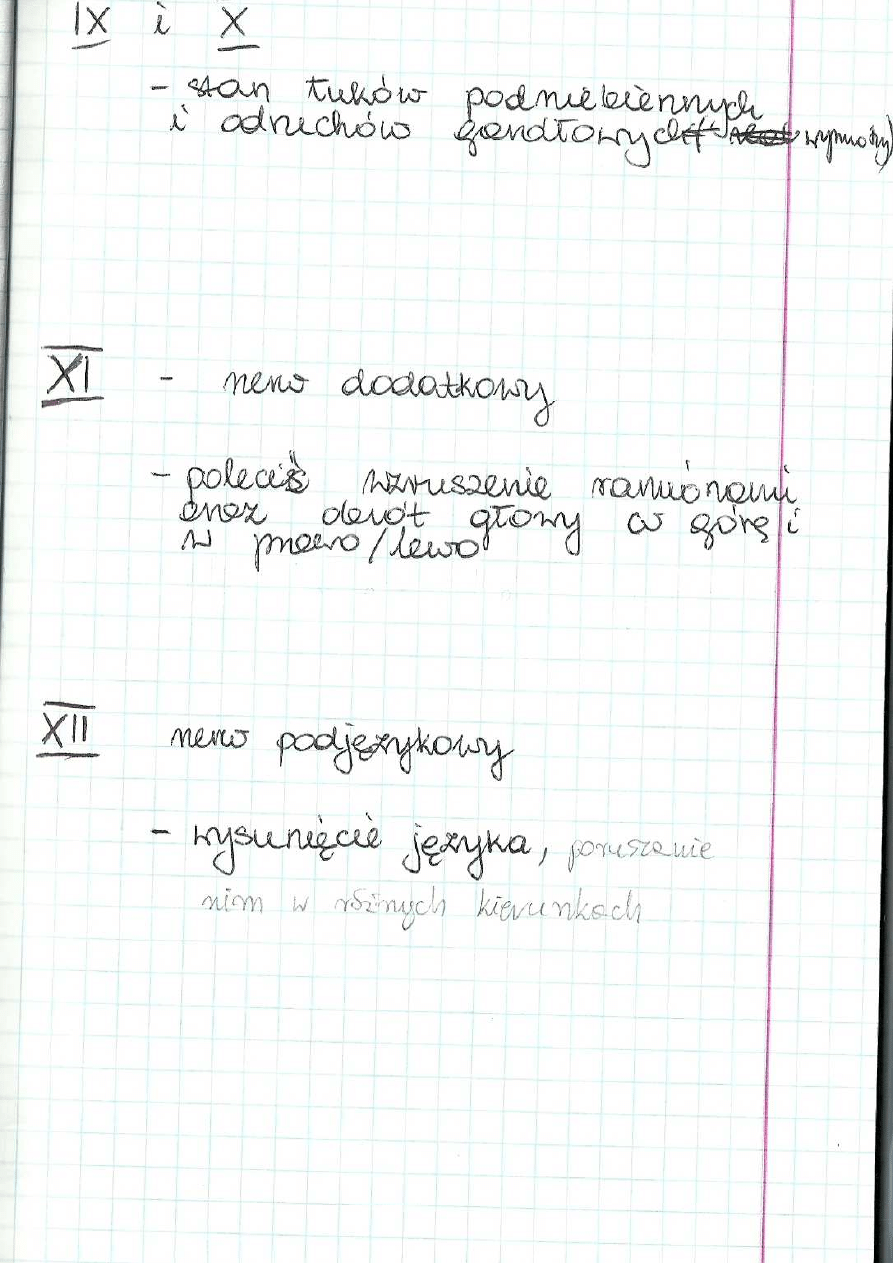 IX i X
- stan łuków podniebiennych
i odruchów gardłowych (wymioty)
XI - nerw dodatkowy
- polecić wzruszenie ramionami
oraz obrót głowy w górę i
w prawo/lewo
XII nerw podjęzykowy
- wysunięcie języka, poruszanie
nim w różnych kierunkach